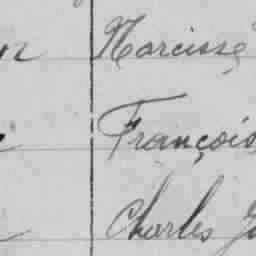 n Narcisse
François
Charles